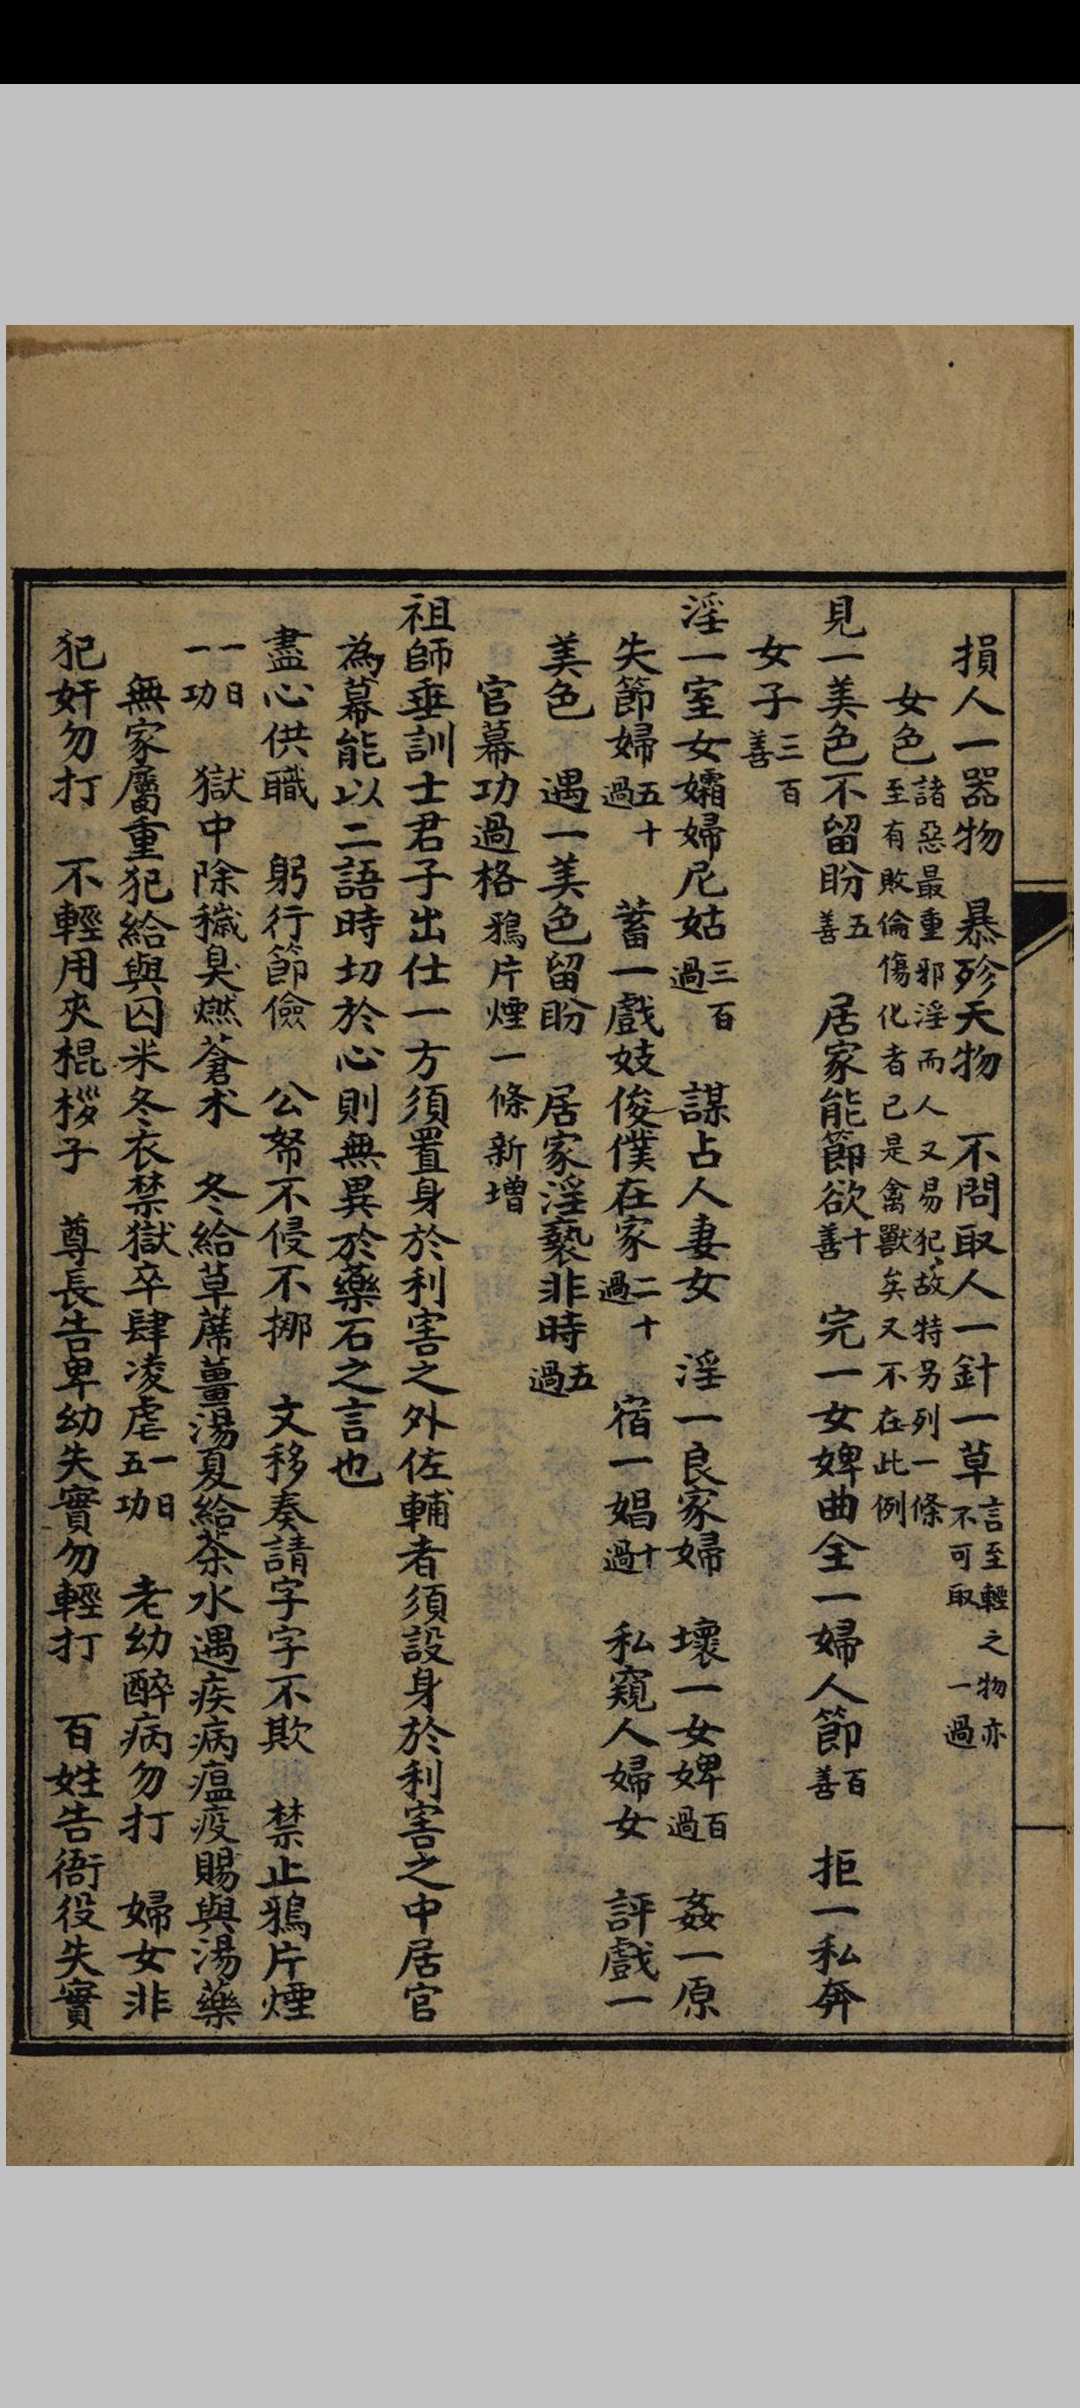 損人一器物　暴殄天物　不問取人一針一草言至輕之物亦不可取　一過
女色諸惡最重邪淫而人又易犯故特另列一條至有敗倫傷化者已是禽獸矣又不在此例
見一美色不留盼五善　居家能節欲十善　完一女婢曲全一婦人節百善　拒一私奔
女子三百善
淫一室女孀婦尼姑三百過　謀占人妻女　淫一良家婦　壞一女婢百過　姦一原
失節婦五十過　蓄一戲妓俊僕在家二十過　宿一娼十過　私窺人婦女　評戲一
美色　遇一美色留盼　居家淫褻非時五過
官幕功過格鴉片煙一條新增
祖師垂訓士君子出仕一方須置身於利害之外佐輔者須設身於利害之中居官
為幕能以二語時切於心則無異於藥石之言也
盡心供職　躬行節儉　公帑不侵不挪　文移奏請字字不欺　禁止鴉片煙
一日一功　獄中除穢臭燃蒼朮　冬給草蓆薑湯夏給茶水遇疾病瘟疫賜與湯藥
無家屬重犯給與囚米冬衣禁獄卒肆凌虐一日五功　老幼醉病勿打　婦女非
犯奸勿打　不輕用夾棍桚子　尊長告卑幼失實勿輕打　百姓告衙役失實